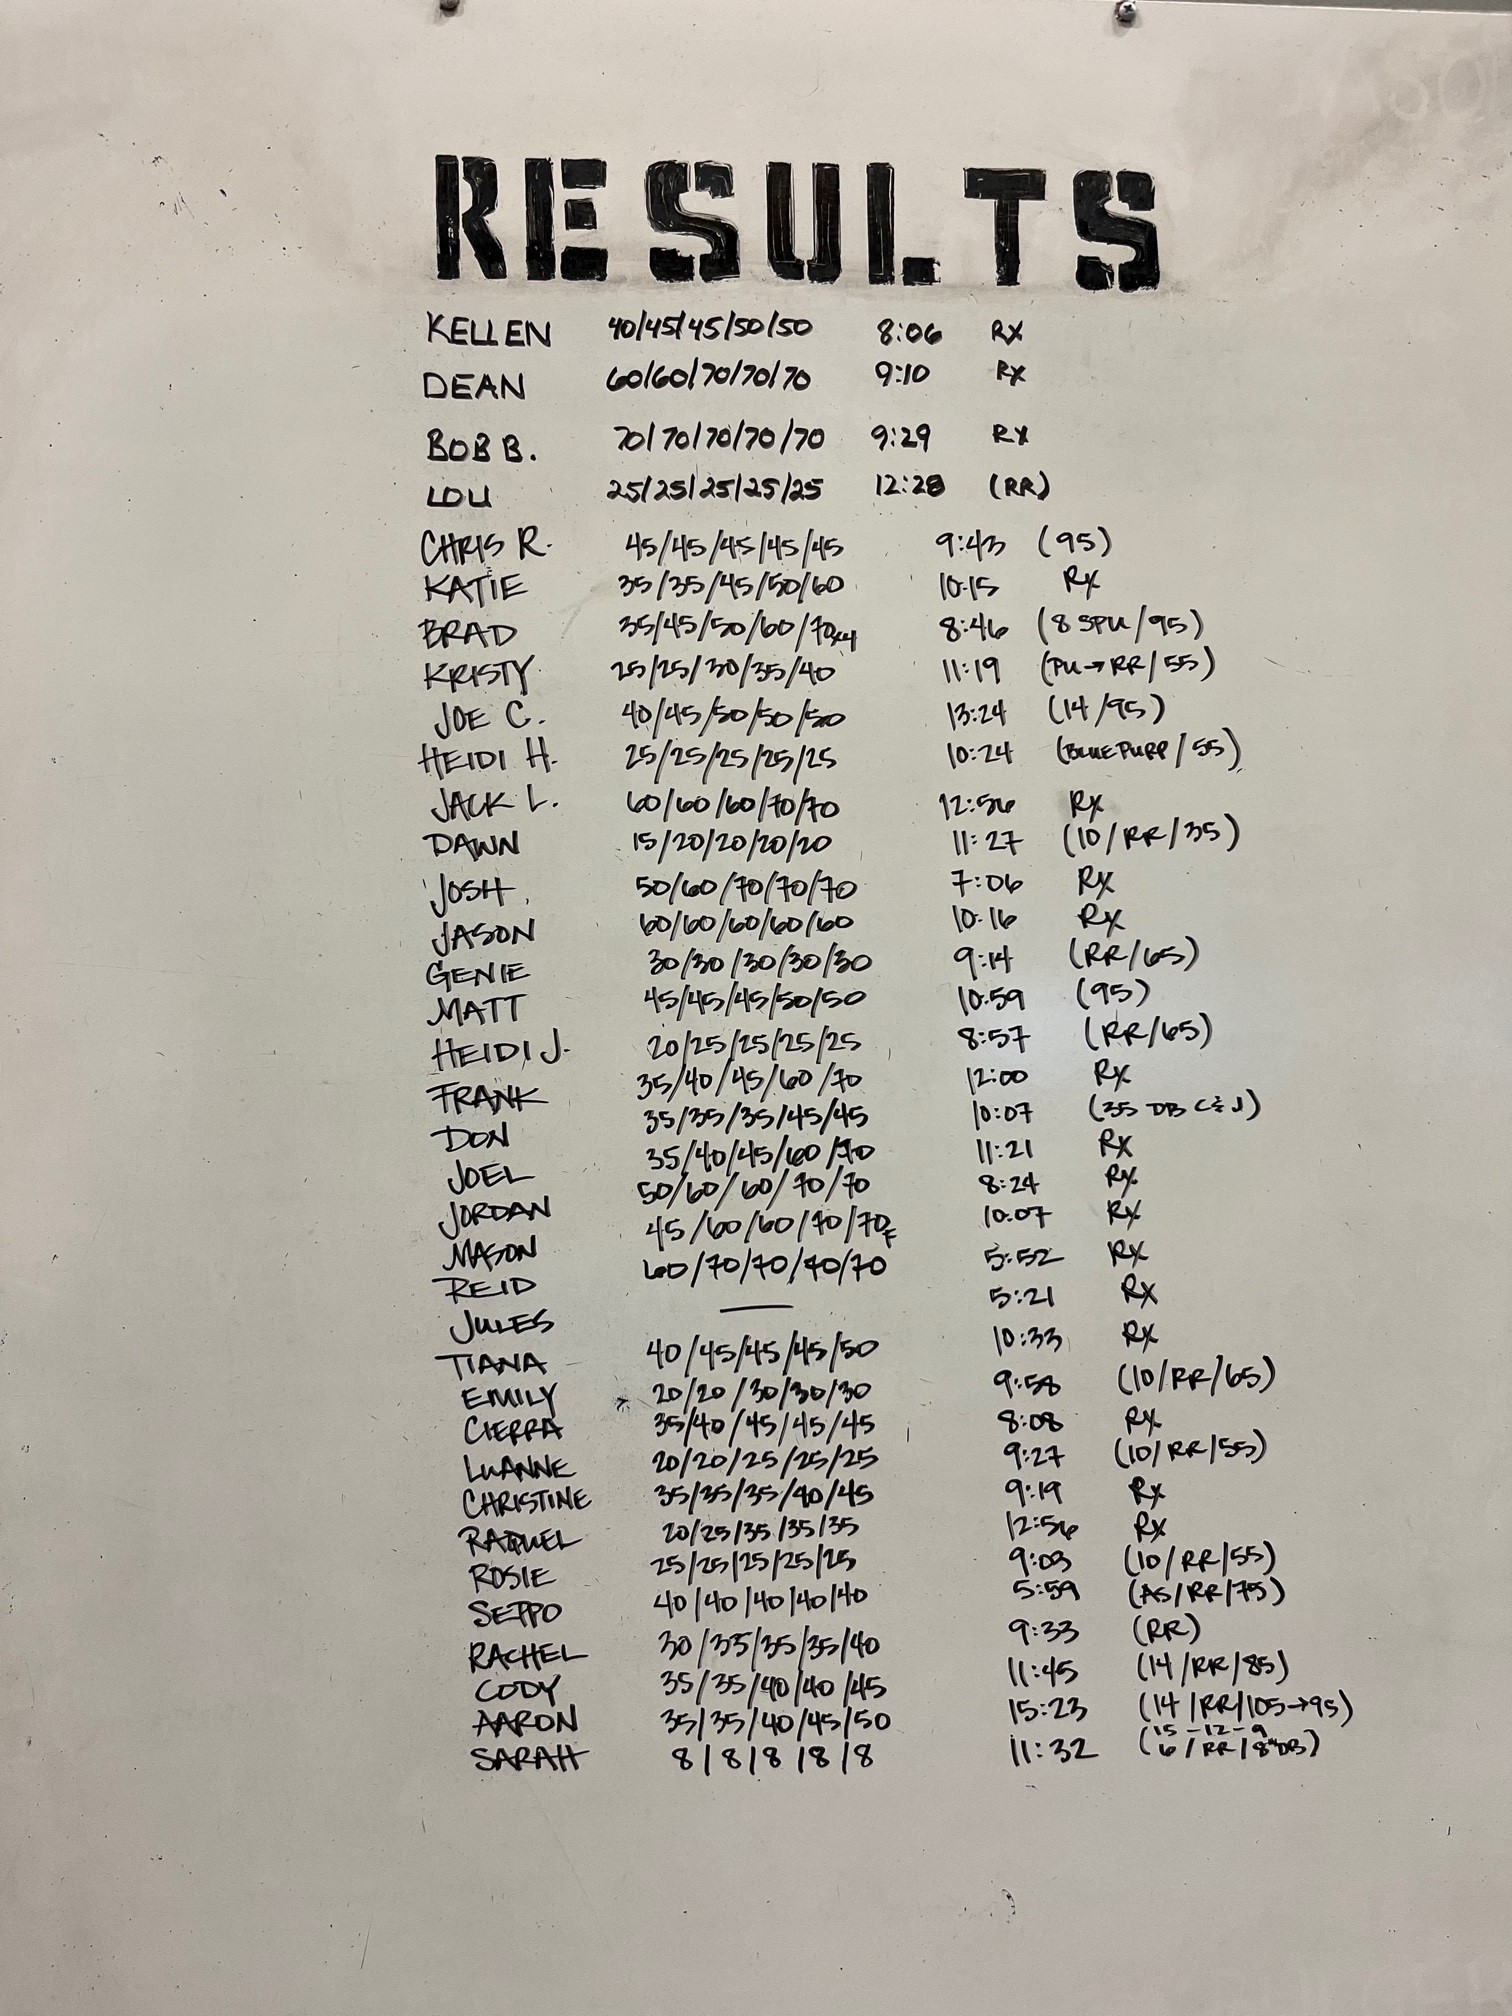 RESULTS
KELLEN 40/45/45/50/50 8:06 RX
DEAN 60/60/70/70/70 9:10 RX
BOB B. 70/70/70/70/70 9:29 RX
LOU 25/25/25/25/25 12:28 (RR)
CHRIS R. 45/45/45/45/45 9:43 (95)
KATIE 35/35/45/50/60 10:15 RX
BRAD 35/45/50/60/70x4 8:46 (8 SPU/95)
KRISTY 25/25/30/35/40 11:19 (PU→RR/55)
JOE C. 40/45/50/50/50 13:24 (14/95)
HEIDI H. 25/25/25/25/25 10:24 (BLUE PURP/55)
JACK L. 60/60/60/70/70 12:56 RX
DAWN 15/20/20/20/20 11:27 (10/RR/35)
JOSH 50/60/70/70/70 7:06 RX
JASON 60/60/60/60/60 10:16 RX
GENIE 30/30/30/30/30 9:14 (RR/65)
MATT 45/45/45/50/50 10:59 (95)
HEIDI J. 20/25/25/25/25 8:57 (RR/65)
FRANK 35/40/45/60/70 12:00 RX
DON 35/35/35/45/45 10:07 (35 DB C&J)
JOEL 35/40/45/60/70 11:21 RX
JORDAN 50/60/60/70/70 8:24 RX
MASON 45/60/60/70/70F 10:07 RX
REID 60/70/70/70/70 5:52 RX
JULES — 5:21 RX
TIANA 40/45/45/45/50 10:33 RX
EMILY 20/20/30/30/30 9:58 (10/RR/65)
CIERRA 35/40/45/45/45 8:08 RX
LUANNE 20/20/25/25/25 9:27 (10/RR/55)
CHRISTINE 35/35/35/40/45 9:19 RX
RAQUEL 20/25/35/35/35 12:56 RX
ROSIE 25/25/25/25/25 9:03 (10/RR/55)
SEPPO 40/40/40/40/40 5:59 (AS/RR/75)
RACHEL 30/35/35/35/40 9:33 (RR)
CODY 35/35/40/40/45 11:45 (14/RR/85)
AARON 35/35/40/45/50 15:23 (14/RR/105→95)
SARAH 8/8/8/8/8 11:32 (15-12-9
6/RR/8# DB)